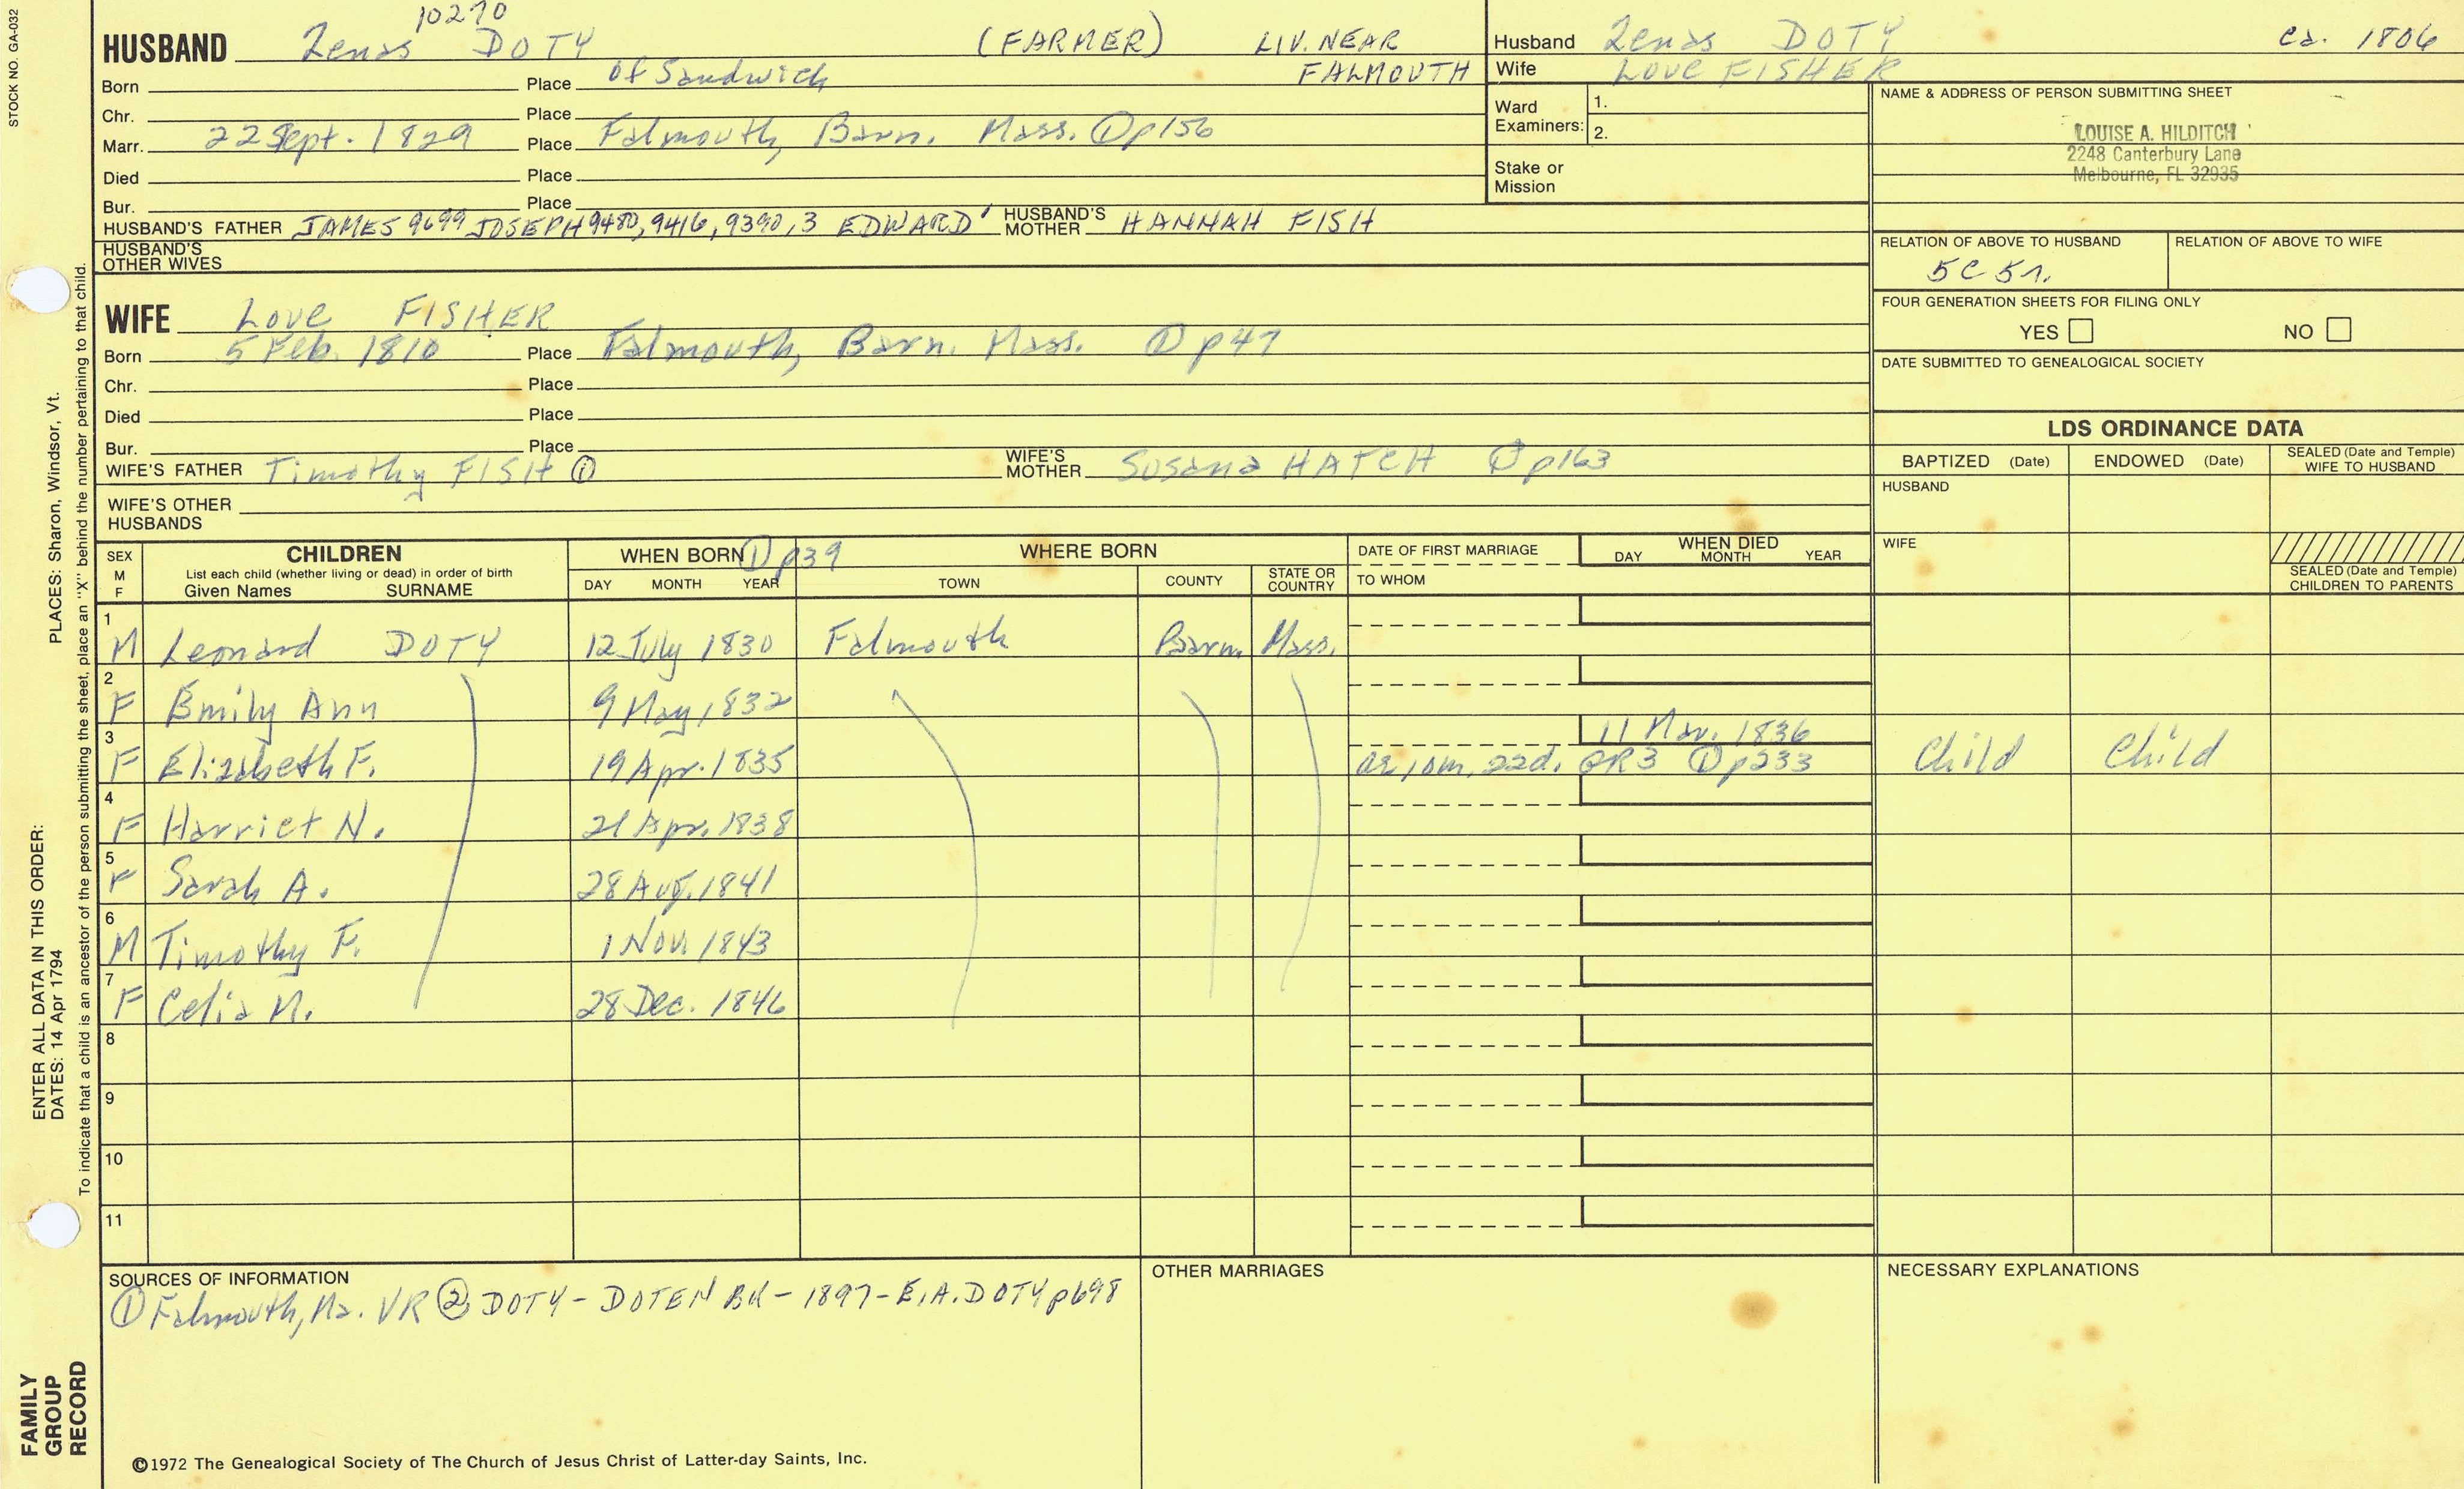 STOCK NO. GA-032
10270
HUSBAND Zenas DOTY (FARMER) LIV. NEAR
FALMOUTH
Born Place of Sandwich
Chr. Place
Marr. 22 Sept. 1829 Place Falmouth, Barn. Mass. ① p156
Died Place
Bur. Place
HUSBAND'S FATHER JAMES 9699 JOSEPH 9480, 9416, 9390, 3 EDWARD' HUSBAND'S MOTHER HANNAH FISH
HUSBAND'S OTHER WIVES
Husband Zenas DOTY ca. 1806
Wife LOVE FISHER
Ward Examiners: 1.
2.
Stake or Mission
NAME & ADDRESS OF PERSON SUBMITTING SHEET
LOUISE A. HILDITCH
2248 Canterbury Lane
Melbourne, FL 32935
RELATION OF ABOVE TO HUSBAND RELATION OF ABOVE TO WIFE
5C 5r.
FOUR GENERATION SHEETS FOR FILING ONLY
YES NO
DATE SUBMITTED TO GENEALOGICAL SOCIETY
WIFE Love FISHER
Born 5 Feb. 1810 Place Falmouth, Barn. Mass. ① p47
Chr. Place
Died Place
Bur. Place
WIFE'S FATHER Timothy FISH ① WIFE'S MOTHER Susana HATCH ① p163
WIFE'S OTHER HUSBANDS
LDS ORDINANCE DATA
BAPTIZED (Date) ENDOWED (Date) SEALED (Date and Temple) WIFE TO HUSBAND
HUSBAND
WIFE
SEALED (Date and Temple) CHILDREN TO PARENTS
SEX M F
CHILDREN
List each child (whether living or dead) in order of birth
Given Names SURNAME
WHEN BORN ① p39
DAY MONTH YEAR
WHERE BORN
TOWN COUNTY STATE OR COUNTRY
DATE OF FIRST MARRIAGE
TO WHOM
WHEN DIED
DAY MONTH YEAR
1 M Leonard DOTY 12 July 1830 Falmouth Barn. Mass.
2 F Emily Ann 9 May, 1832
3 F Elizabeth F. 19 Apr. 1835 11 Mar. 1836
ae 10m, 22d. GR3 ① p233 Child Child
4 F Harriet N. 21 Apr. 1838
5 F Sarah A. 28 Aug. 1841
6 M Timothy F. 1 Nov. 1843
7 F Celia M. 28 Dec. 1846
8
9
10
11
SOURCES OF INFORMATION
① Falmouth, Ma. VR ② DOTY - DOTEN BK - 1897 - E.A. DOTY p698
OTHER MARRIAGES
NECESSARY EXPLANATIONS
©1972 The Genealogical Society of The Church of Jesus Christ of Latter-day Saints, Inc.
FAMILY GROUP RECORD
ENTER ALL DATA IN THIS ORDER:
DATES: 14 Apr 1794
PLACES: Sharon, Windsor, Vt.
To indicate that a child is an ancestor of the person submitting the sheet, place an "X" behind the number pertaining to that child.